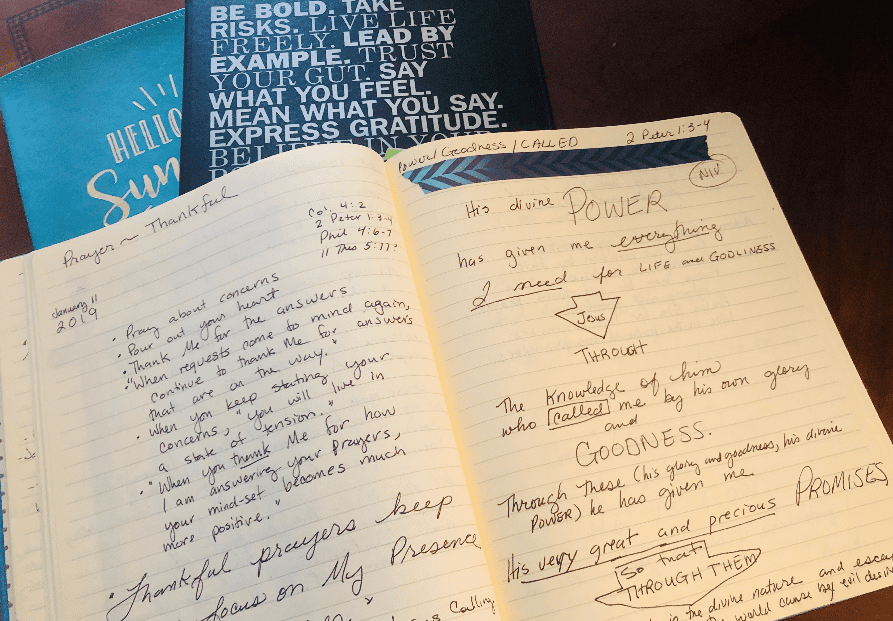 HELLO
Sun
BE BOLD. TAKE
RISKS. LIVE LIFE
FREELY. LEAD BY
EXAMPLE. TRUST
YOUR GUT. SAY
WHAT YOU FEEL.
MEAN WHAT YOU SAY.
EXPRESS GRATITUDE.
BELIEVE IN YOUR
Prayer ~ Thankful
Col. 4:2
2 Peter 1:3-4
Phil 4:6-7
1 Thes 5:17
January 11
2019
• Pray about concerns
• Pour out your heart
• Thank Me for the answers
• "When requests come to mind again,
continue to thank Me for answers
that are on the way."
• When you keep stating your
concerns, "you will live in
a state of tension."
• "When you thank Me for how
I am answering your Prayers,
your mind-set becomes much
more positive."
• Thankful prayers keep
focus on My Presence
Power/Goodness/CALLED
2 Peter 1:3-4
NIV
His divine POWER
has given me everything
I need for LIFE and GODLINESS
Jesus
THROUGH
The Knowledge of him
who called me by his own glory
and
GOODNESS.
Through These (his glory and goodness, his divine
POWER) he has given me
His very great and precious PROMISES
So that
THROUGH THEM
in the divine nature and escap
the world cause by evil desire